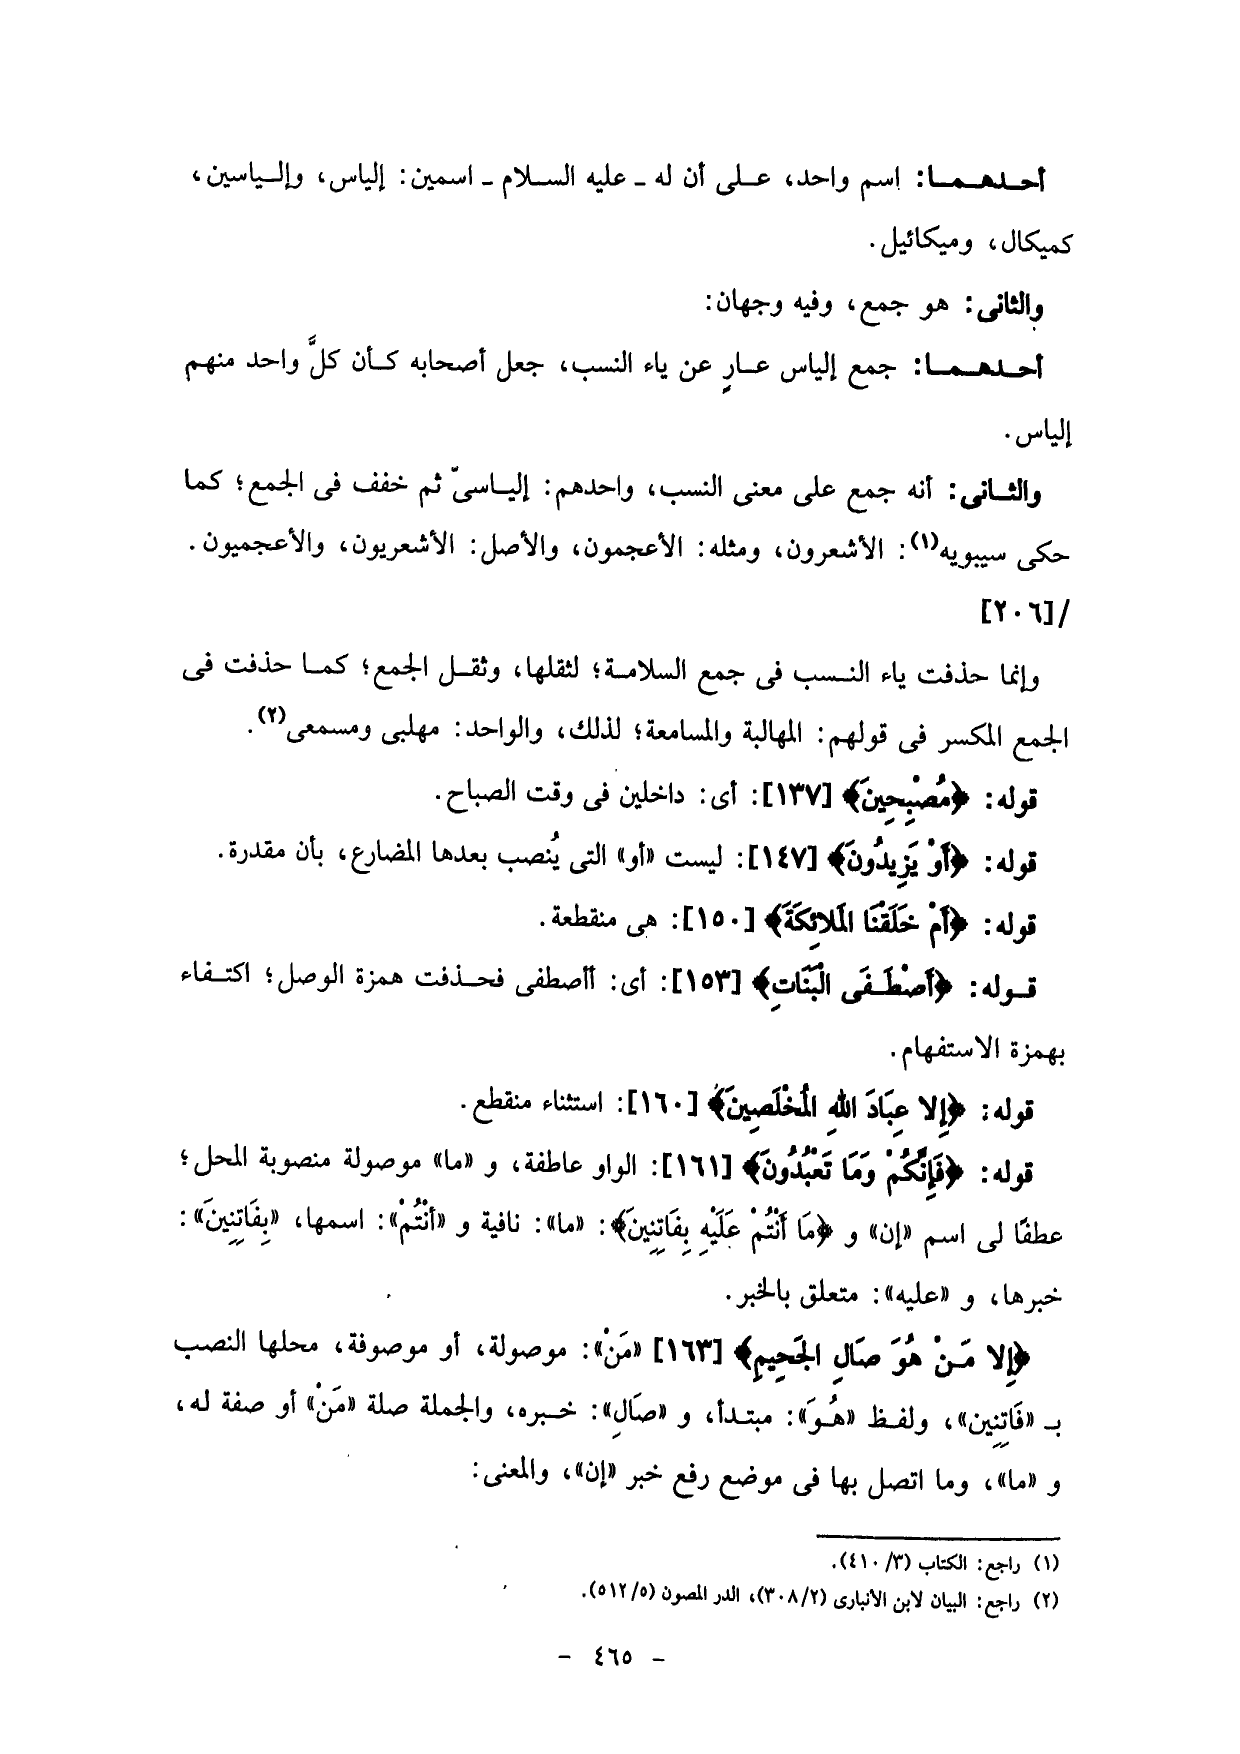 أحدهما: اسم واحد، على أن له ـ عليه السلام ـ اسمين: إلياس، وإلياسين،
كميكال، وميكائيل.
والثانى: هو جمع، وفيه وجهان:
أحدهما: جمع إلياس عارٍ عن ياء النسب، جعل أصحابه كأن كلَّ واحد منهم
إلياس.
والثانى: أنه جمع على معنى النسب، واحدهم: إلياسىّ ثم خفف فى الجمع؛ كما
حكى سيبويه(١): الأشعرون، ومثله: الأعجمون، والأصل: الأشعريون، والأعجميون.
/[٢٠٦]
وإنما حذفت ياء النسب فى جمع السلامة؛ لثقلها، وثقل الجمع؛ كما حذفت فى
الجمع المكسر فى قولهم: المهالبة والمسامعة؛ لذلك، والواحد: مهلبى ومسمعى(٢).
قوله: ﴿مُصْبِحِينَ﴾ [١٣٧]: أى: داخلين فى وقت الصباح.
قوله: ﴿أَوْ يَزِيدُونَ﴾ [١٤٧]: ليست «أو» التى يُنصب بعدها المضارع، بأن مقدرة.
قوله: ﴿أَمْ خَلَقْنَا الْمَلائِكَةَ﴾ [١٥٠]: هى منقطعة.
قوله: ﴿أَصْطَفَى الْبَنَاتِ﴾ [١٥٣]: أى: أأصطفى فحذفت همزة الوصل؛ اكتفاء
بهمزة الاستفهام.
قوله: ﴿إِلا عِبَادَ اللهِ الْمُخْلَصِينَ﴾ [١٦٠]: استثناء منقطع.
قوله: ﴿فَإِنَّكُمْ وَمَا تَعْبُدُونَ﴾ [١٦١]: الواو عاطفة، و «ما» موصولة منصوبة المحل؛
عطفًا لى اسم «إن» و ﴿مَا أَنْتُمْ عَلَيْهِ بِفَاتِنِينَ﴾: «ما»: نافية و «أَنْتُمْ»: اسمها، «بِفَاتِنِينَ»:
خبرها، و «عليه»: متعلق بالخبر.
﴿إِلا مَنْ هُوَ صَالِ الْجَحِيمِ﴾ [١٦٣] «مَنْ»: موصولة، أو موصوفة، محلها النصب
بـ «فَاتِنِين»، ولفظ «هُوَ»: مبتدأ، و «صَالِ»: خبره، والجملة صلة «مَنْ» أو صفة له،
و «ما»، وما اتصل بها فى موضع رفع خبر «إن»، والمعنى:
(١) راجع: الكتاب (٤١٠/٣).
(٢) راجع: البيان لابن الأنبارى (٣٠٨/٢)، الدر المصون (٥١٢/٥).
- ٤٦٥ -